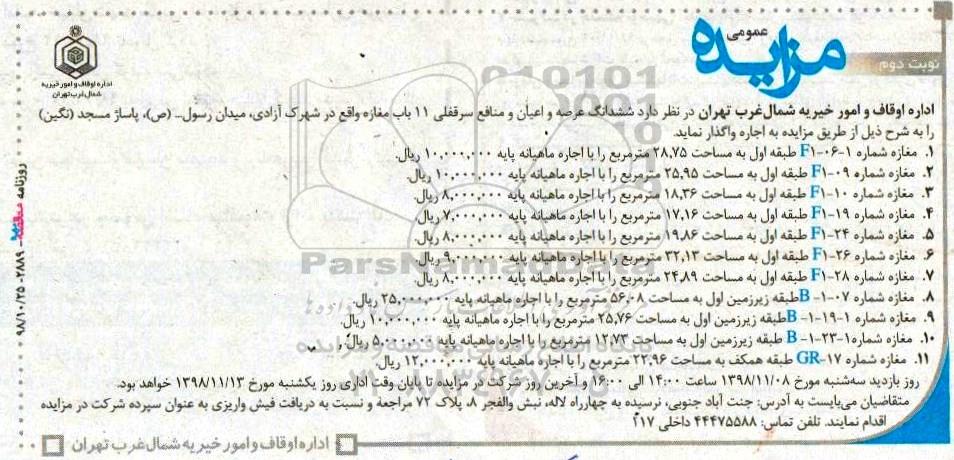 مزایده
عمومی
نوبت دوم
اداره اوقاف و امور خیریه
شمال‌غرب تهران
اداره اوقاف و امور خیریه شمال‌غرب تهران در نظر دارد ششدانگ عرصه و اعیان و منافع سرقفلی ۱۱ باب مغازه واقع در شهرک آزادی، میدان رسول... (ص)، پاساژ مسجد (نگین)
را به شرح ذیل از طریق مزایده به اجاره واگذار نماید.
۱. مغازه شماره ۱-۰۶-F۱ طبقه اول به مساحت ۲۸,۷۵ مترمربع را با اجاره ماهیانه پایه ۱۰,۰۰۰,۰۰۰ ریال.
۲. مغازه شماره ۰۹-F۱ طبقه اول به مساحت ۲۵,۹۵ مترمربع را با اجاره ماهیانه پایه ۱۰,۰۰۰,۰۰۰ ریال.
۳. مغازه شماره ۱۰-F۱ طبقه اول به مساحت ۱۸,۳۶ مترمربع را با اجاره ماهیانه پایه ۸,۰۰۰,۰۰۰ ریال.
۴. مغازه شماره ۱۹-F۱ طبقه اول به مساحت ۱۷,۱۶ مترمربع را با اجاره ماهیانه پایه ۷,۰۰۰,۰۰۰ ریال.
۵. مغازه شماره ۲۴-F۱ طبقه اول به مساحت ۱۹,۸۶ مترمربع را با اجاره ماهیانه پایه ۸,۰۰۰,۰۰۰ ریال.
۶. مغازه شماره ۲۶-F۱ طبقه اول به مساحت ۳۲,۱۳ مترمربع را با اجاره ماهیانه پایه ۹,۰۰۰,۰۰۰ ریال.
۷. مغازه شماره ۲۸-F۱ طبقه اول به مساحت ۲۴,۸۹ مترمربع را با اجاره ماهیانه پایه ۸,۰۰۰,۰۰۰ ریال.
۸. مغازه شماره ۰۷-۱-B طبقه زیرزمین اول به مساحت ۵۶,۰۸ مترمربع را با اجاره ماهیانه پایه ۲۵,۰۰۰,۰۰۰ ریال.
۹. مغازه شماره ۱-۱۹-۱-B طبقه زیرزمین اول به مساحت ۲۵,۷۶ مترمربع را با اجاره ماهیانه پایه ۱۰,۰۰۰,۰۰۰ ریال.
۱۰. مغازه شماره۱-۲۳-۱-B طبقه زیرزمین اول به مساحت ۱۲,۷۳ مترمربع را با اجاره ماهیانه پایه ۵,۰۰۰,۰۰۰ ریال.
۱۱. مغازه شماره ۱۷-GR طبقه همکف به مساحت ۲۲,۹۶ مترمربع را با اجاره ماهیانه پایه ۱۲,۰۰۰,۰۰۰ ریال.
روز بازدید سه‌شنبه مورخ ۱۳۹۸/۱۱/۰۸ ساعت ۱۴:۰۰ الی ۱۶:۰۰ و آخرین روز شرکت در مزایده تا پایان وقت اداری روز یکشنبه مورخ ۱۳۹۸/۱۱/۱۳ خواهد بود.
متقاضیان می‌بایست به آدرس: جنت آباد جنوبی، نرسیده به چهارراه لاله، نبش والفجر ۸، پلاک ۷۲ مراجعه و نسبت به دریافت فیش واریزی به عنوان سپرده شرکت در مزایده
اقدام نمایند. تلفن تماس: ۴۴۴۷۵۵۸۸ داخلی ۲۱۷
اداره اوقاف و امور خیریه شمال‌غرب تهران
روزنامه مناقصه - ۲۸۸۹ - ۹۸/۱۰/۲۵
ParsNamadData